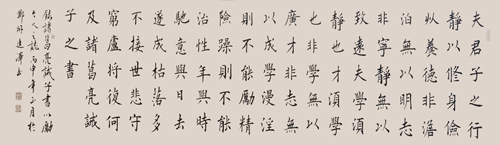 夫君子之行
靜以修身儉
以養德非澹
泊無以明志
非寧靜無以
致遠夫學須
靜也才須學
也非學無以
廣才非志無
以成學
不能勵
險躁則不能
治性年與時
馳意與日去
遂成枯落多
不接世悲守
窮廬將復何
及諸葛亮誡
子之書
錄諸葛亮誡子書以勵
今人之志丙申年正月於
鄭州